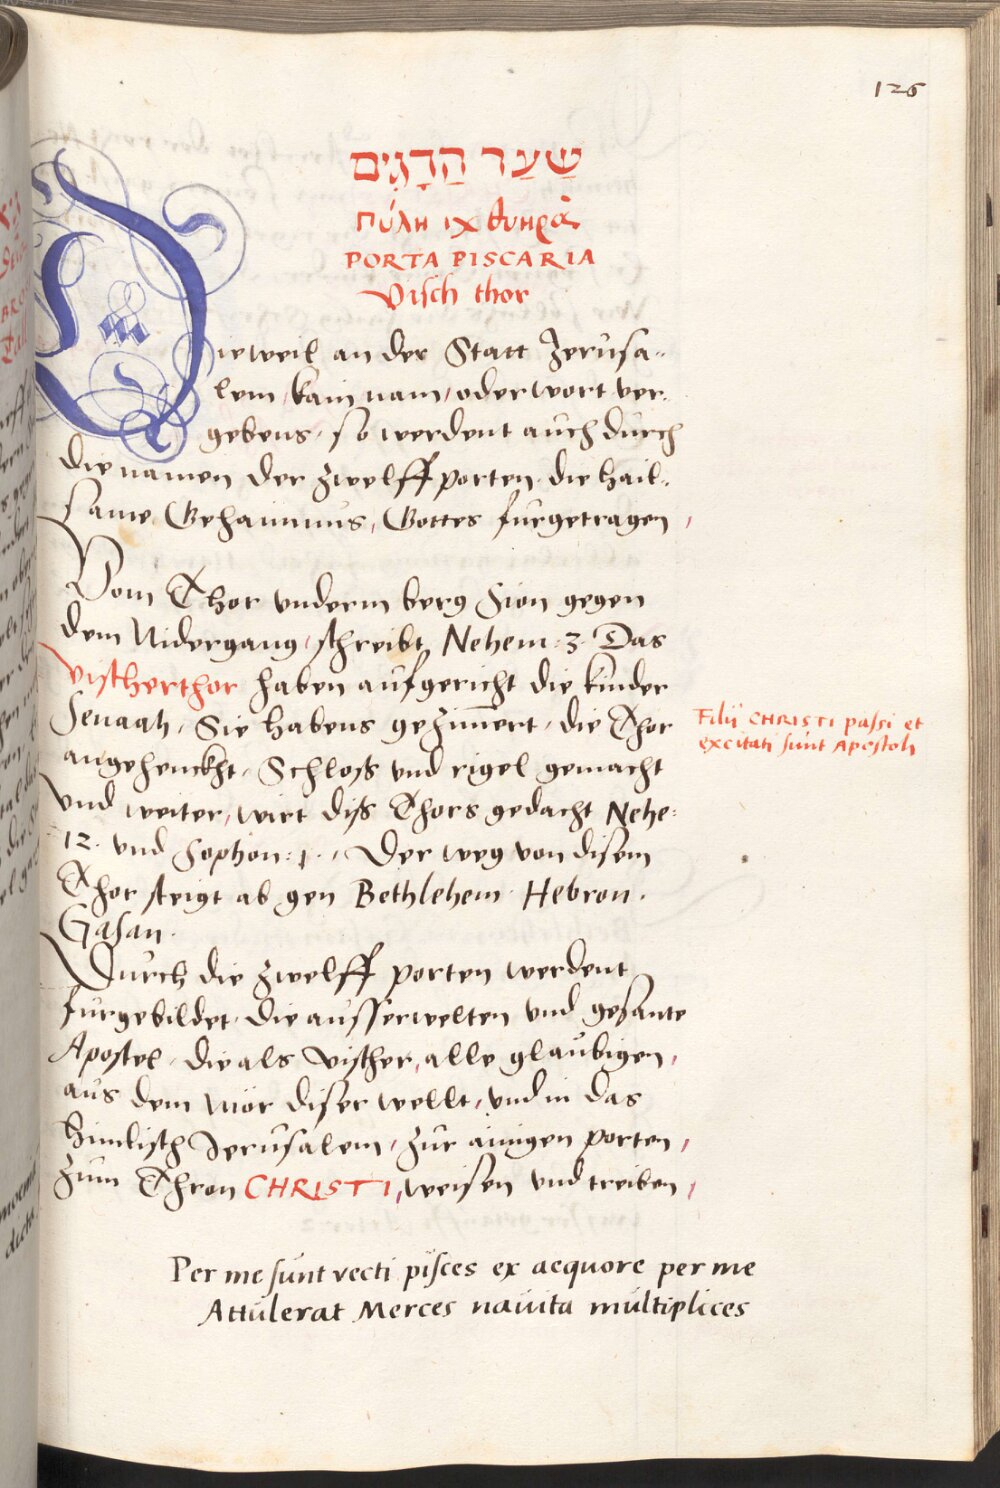 126
שַׁעַר הַדָגִים
πύλη ιχθυηρὰ
PORTA PISCARIA
Visch thor
Dieweil an der Statt Jerusa-
lem, kain nam, oder wort ver-
gebens, so werdent auch durch
die namen der zwelff porten die hail-
same Gehaimnus, Gottes furgetragen,
Vom Thor vnderm berg Sion gegen
dem Nidergang, schreibt Nehem: 3. Das
Vistherthor haben aufgericht die kinder
Senaah, Sie habens gezimert, die Thor
angehenckht, Schloss vnd rigel gemacht
vnd weiter, wirt diss Thors gedacht Nehe:
12. vnd Sophon: 1., Der weg von disem
Thor steigt ab gen Bethlehem Hebron.
Gasan.
Filii CHRISTI passi et
excitati sunt Apostoli
Durch die zwelff porten werdent
furgebildet, die ausserwelten vnd gesante
Apostel, die als Visther, alle glaubigen,
aus dem Mör diser wellt, vnd in das
himlisch Jerusalem, zur ainigen porten,
zum Thron CHRISTI, weisen vnd treiben,
Per me sunt vecti pisces ex aequore per me
Attulerat Merces navita multiplices